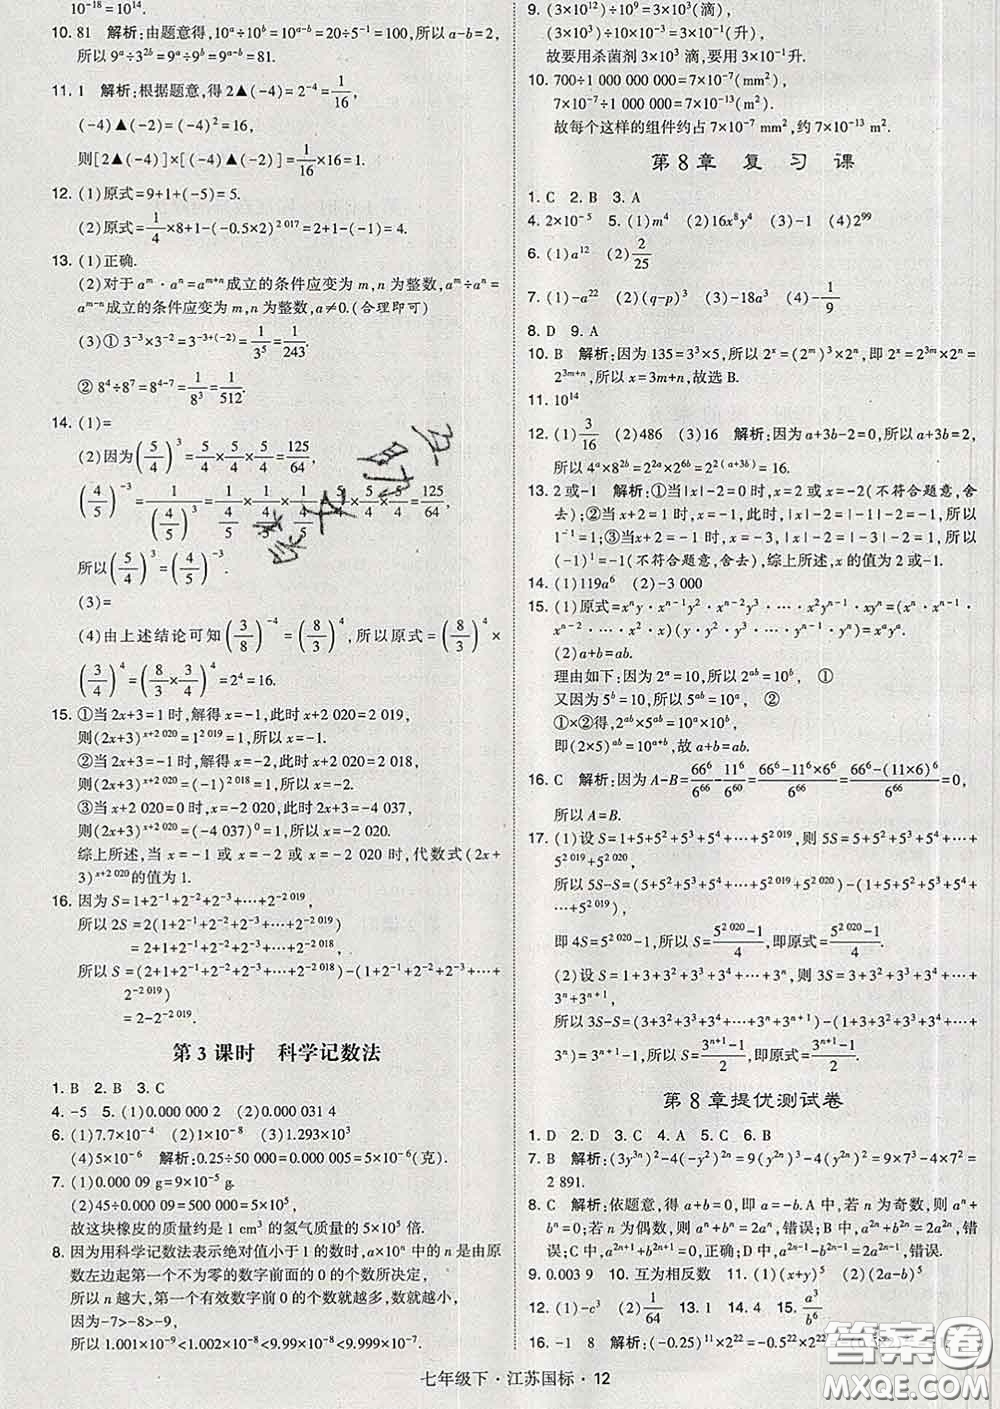 10⁻¹⁸=10¹⁴.
10. 81 解析:由题意得,10ᵃ÷10ᵇ=10ᵃ⁻ᵇ=20÷5⁻¹=100,所以a-b=2,
所以9ᵃ÷3²ᵇ=9ᵃ÷9ᵇ=9ᵃ⁻ᵇ=81.
11. 1 解析:根据题意,得2▲(-4)=2⁻⁴=1/16,
(-4)▲(-2)=(-4)²=16,
则[2▲(-4)]×[(-4)▲(-2)]=1/16×16=1.
12. (1)原式=9+1+(-5)=5.
(2)原式=1/4×8+1-(-0.5×2)=2+1-(-1)=4.
13. (1)正确.
(2)对于aᵐ·aⁿ=aᵐ⁺ⁿ成立的条件应变为m,n为整数,aᵐ÷aⁿ=
aᵐ⁻ⁿ成立的条件应变为m,n为整数,a≠0.(合理即可)
(3)① 3⁻³×3⁻²=3⁻³⁺⁽⁻²⁾=1/3⁵=1/243.
② 8⁴÷8⁷=8⁴⁻⁷=1/8³=1/512.
14. (1)=
(2)因为(5/4)³=5/4×5/4×5/4=125/64,
(4/5)⁻³=1/(4/5)³=1/(4/5)×1/(4/5)×1/(4/5)=5/4×5/4×5/4=125/64,
所以(5/4)³=(4/5)⁻³.
(3)=
(4)由上述结论可知(3/8)⁻⁴=(8/3)⁴,所以原式=(8/3)⁴×
(3/4)⁴=(8/3×3/4)⁴=2⁴=16.
15. ①当2x+3=1时,解得x=-1,此时x+2 020=2 019,
则(2x+3)ˣ⁺²⁰²⁰=1²⁰¹⁹=1,所以x=-1.
②当2x+3=-1时,解得x=-2,此时x+2 020=2 018,
则(2x+3)ˣ⁺²⁰²⁰=(-1)²⁰¹⁸=1,所以x=-2.
③当x+2 020=0时,x=-2 020,此时2x+3=-4 037,
则(2x+3)ˣ⁺²⁰²⁰=(-4 037)⁰=1,所以x=-2 020.
综上所述,当x=-1或x=-2或x=-2 020时,代数式(2x+
3)ˣ⁺²⁰²⁰的值为1.
16. 因为S=1+2⁻¹+2⁻²+…+2⁻²⁰¹⁹,
所以2S=2(1+2⁻¹+2⁻²+2⁻³+…+2⁻²⁰¹⁹)
=2+1+2⁻¹+2⁻²+2⁻³+…+2⁻²⁰¹⁸,
所以S=(2+1+2⁻¹+2⁻²+…+2⁻²⁰¹⁸)-(1+2⁻¹+2⁻²+…+
2⁻²⁰¹⁹)
=2-2⁻²⁰¹⁹.
第3课时 科学记数法
1. B 2. B 3. C
4. -5 5. (1)0.000 000 2 (2)0.000 031 4
6. (1)7.7×10⁻⁴ (2)1×10⁻⁸ (3)1.293×10⁻³
(4)5×10⁻⁶ 解析:0.25÷50 000=0.000 005=5×10⁻⁶(克).
7. (1)0.000 09 g=9×10⁻⁵ g.
(2)45÷0.000 09=500 000=5×10⁵,
故这块橡皮的质量约是1 cm³的氢气质量的5×10⁵倍.
8. 因为用科学记数法表示绝对值小于1的数时,a×10ⁿ中的n是由原
数左边起第一个不为零的数字前面的0的个数所决定,
所以n越大,第一个有效数字前0的个数就越多,数就越小,
因为-7>-8>-9,
所以1.001×10⁻⁹<1.002×10⁻⁸<9.99×10⁻⁸<9.999×10⁻⁷.
9. (3×10¹²)÷10⁹=3×10³(滴),
(3×10³)÷10÷10=3×10¹(升),
故要用杀菌剂3×10³滴,约3×10¹升.
10. 700÷1 000 000 000=7×10⁻⁷(mm²),
7×10⁻⁷÷1 000 000=7×10⁻¹³(m²).
故每个这样的组件约占7×10⁻⁷ mm²,约7×10⁻¹³ m².
第8章 复习课
1. C 2. B 3. A
4. 2×10⁻⁵ 5. (1)m⁴ (2)16x⁸y⁴ (3)-1 (4)2⁹⁹
6. (1)a¹² (2)2/25
7. (1)-a²² (2)(q-p)³ (3)-18a³ (4)-1/9
8. D 9. A
10. B 解析:因为135=3³×5,所以2ˣ=(2ᵐ)³×2ⁿ,即2ˣ=2³ᵐ×2ⁿ=
2³ᵐ⁺ⁿ,所以x=3m+n,故选B.
11. 10¹⁴
12. (1)3/16 (2)486 (3)16 解析:因为a+3b-2=0,所以a+3b=2,
所以4ᵃ×8²ᵇ=2²ᵃ×2⁶ᵇ=2²⁽ᵃ⁺³ᵇ⁾=16.
13. 2或-1 解析:①当|x|-2=0时,x=2或x=-2(不符合题意,舍
去);②当x=1时,x=-1,此时,|x|-2=|-1|-2=-1,所以
1⁻¹=1;③当x=-1时,x=-3,此时,|x|-2=|-3|-2=1,所以
(-1)¹=-1(不符合题意,舍去),综上所述,x的值为2或-1.
14. (1)119a⁶ (2)-3 000
15. (1)原式=xⁿy·xⁿ⁻¹y²·xⁿ⁻²y³·…·x²yⁿ⁻¹·xyⁿ=(xⁿ·xⁿ⁻¹·
xⁿ⁻²·…·x²·x)(y·y²·y³·…·yⁿ⁻¹·yⁿ)=xᵃyᵃ.
(2)a+b=ab.
理由如下:因为2ᵃ=10,所以2ᵃᵇ=10ᵇ, ①
又因为5ᵇ=10,所以5ᵃᵇ=10ᵃ, ②
①×②得,2ᵃᵇ×5ᵃᵇ=10ᵃ×10ᵇ,
即(2×5)ᵃᵇ=10ᵃ⁺ᵇ,故a+b=ab.
16. C 解析:因为A-B=66⁶/6⁶⁶-11⁶/6⁶⁰=(66⁶-11⁶×6⁶)/6⁶⁶=(66⁶-(11×6)⁶)/6⁶⁶=0,
所以A=B.
17. (1)设S=1+5+5²+5³+5⁴+…+5²⁰¹⁹,则5S=5+5²+5³+5⁴+…+
5²⁰¹⁹+5²⁰²⁰,
所以5S-S=(5+5²+5³+5⁴+…+5²⁰²⁰)-(1+5+5²+5³+5⁴+…+5²⁰¹⁹),
即4S=5²⁰²⁰-1,所以S=(5²⁰²⁰-1)/4,即原式=(5²⁰²⁰-1)/4.
(2)设S=1+3+3²+3³+3⁴+…+3ⁿ,则3S=3+3²+3³+3⁴+…+
3ⁿ+3ⁿ⁺¹,
所以3S-S=(3+3²+3³+3⁴+…+3ⁿ+3ⁿ⁺¹)-(1+3+3²+3³+3⁴+…+3ⁿ)=3ⁿ⁺¹-1,所以S=(3ⁿ⁺¹-1)/2,即原式=(3ⁿ⁺¹-1)/2.
第8章提优测试卷
1. D 2. D 3. D 4. A 5. C 6. B
7. B 解析:(3y³ⁿ)²-4(-y²)²ⁿ=9(y²ⁿ)³-4(y²ⁿ)²=9×7³-4×7²=
2 891.
8. C 解析:依题意,得a+b=0,即a=-b.A中,若n为奇数,则aⁿ+
bⁿ=0;若n为偶数,则aⁿ+bⁿ=2aⁿ,错误;B中,a²ⁿ+b²ⁿ=2a²ⁿ,错
误;C中,a²ⁿ⁺¹+b²ⁿ⁺¹=0,正确;D中,a²ⁿ⁻¹-b²ⁿ⁻¹=2a²ⁿ⁻¹,错误.
9. 0.003 9 10. 互为相反数 11. (1)(x+y)⁵ (2)(2a-b)⁵
12. (1)-c³ (2)1/64 13. 1 14. 4 15. a³/b⁶
16. -1 8 解析:(-0.25)¹¹×2²²=-0.5²²×2²²
七年级下·江苏国标·12
答案卷
MXQE.COM